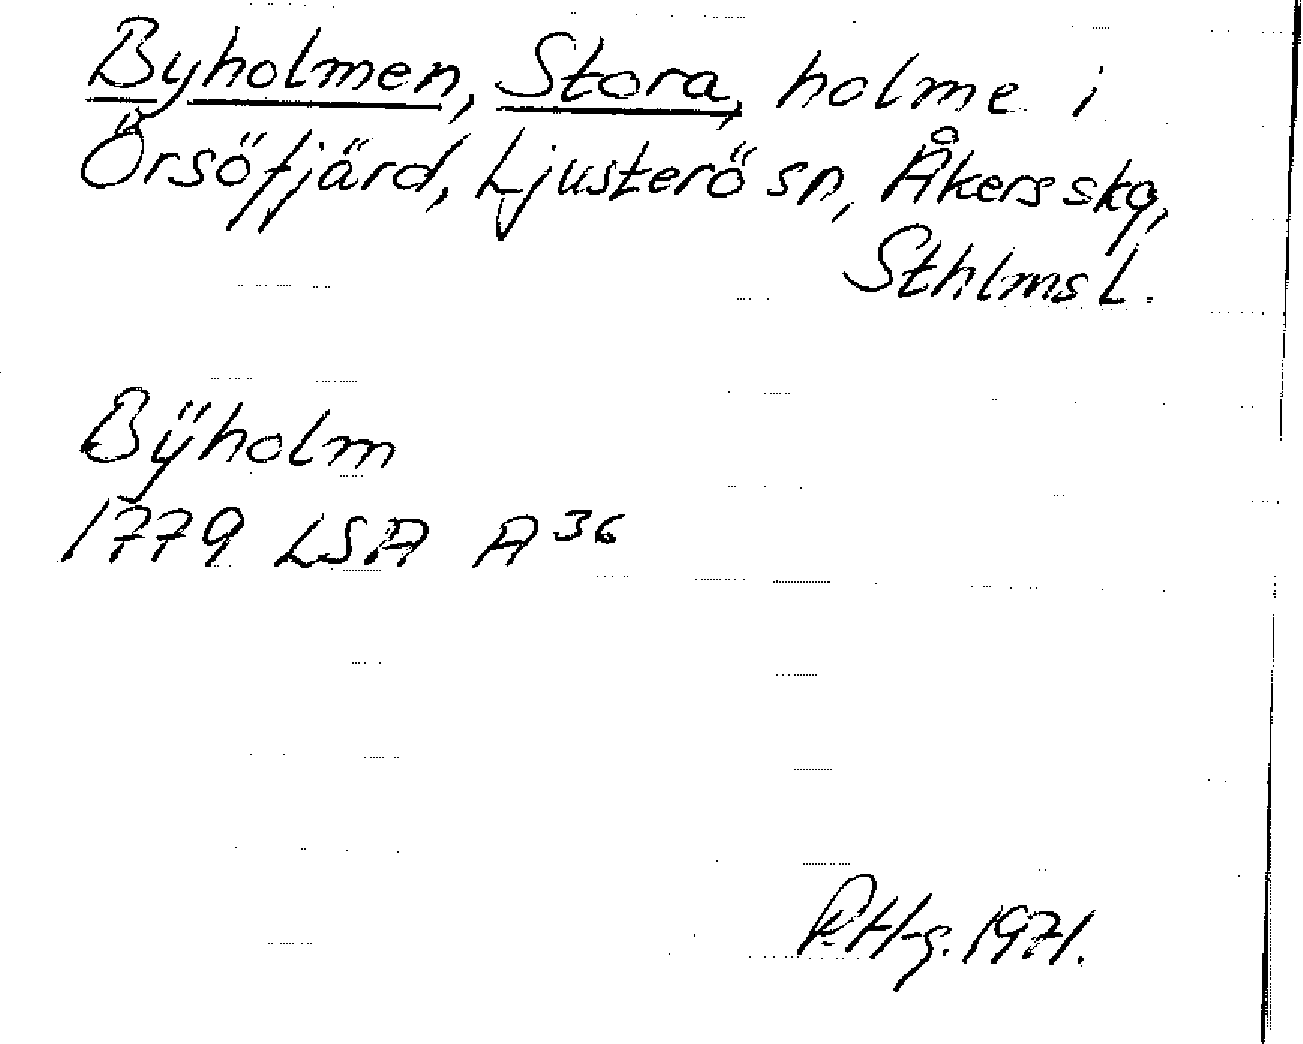 Byholmen, Stora, holme i
Örsöfjärd, Ljusterö sn, Åkers skg,
Sthlms l.
Bÿholm
1779 LSA A 36
R.H-g. 1971.